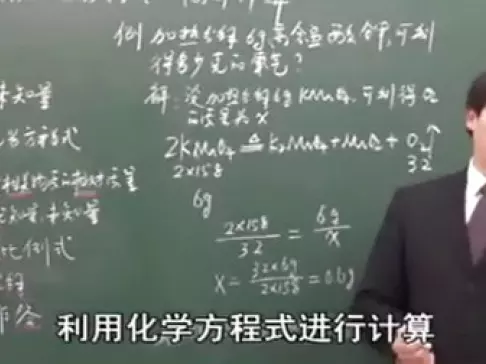 例 加热分解6g高锰酸钾,可制
得多少克的氧气?
解:设加热分解6g KMnO₄,可制得O₂
的质量为x
2KMnO₄ ≜ K₂MnO₄ + MnO₂ + O₂↑
2×158 32
6g
2×158/32 = 6g/x
x = 32×6g/2×158 = 0.6g
未知量
方程式
相对质量
未知量
比例式
利用化学方程式进行计算